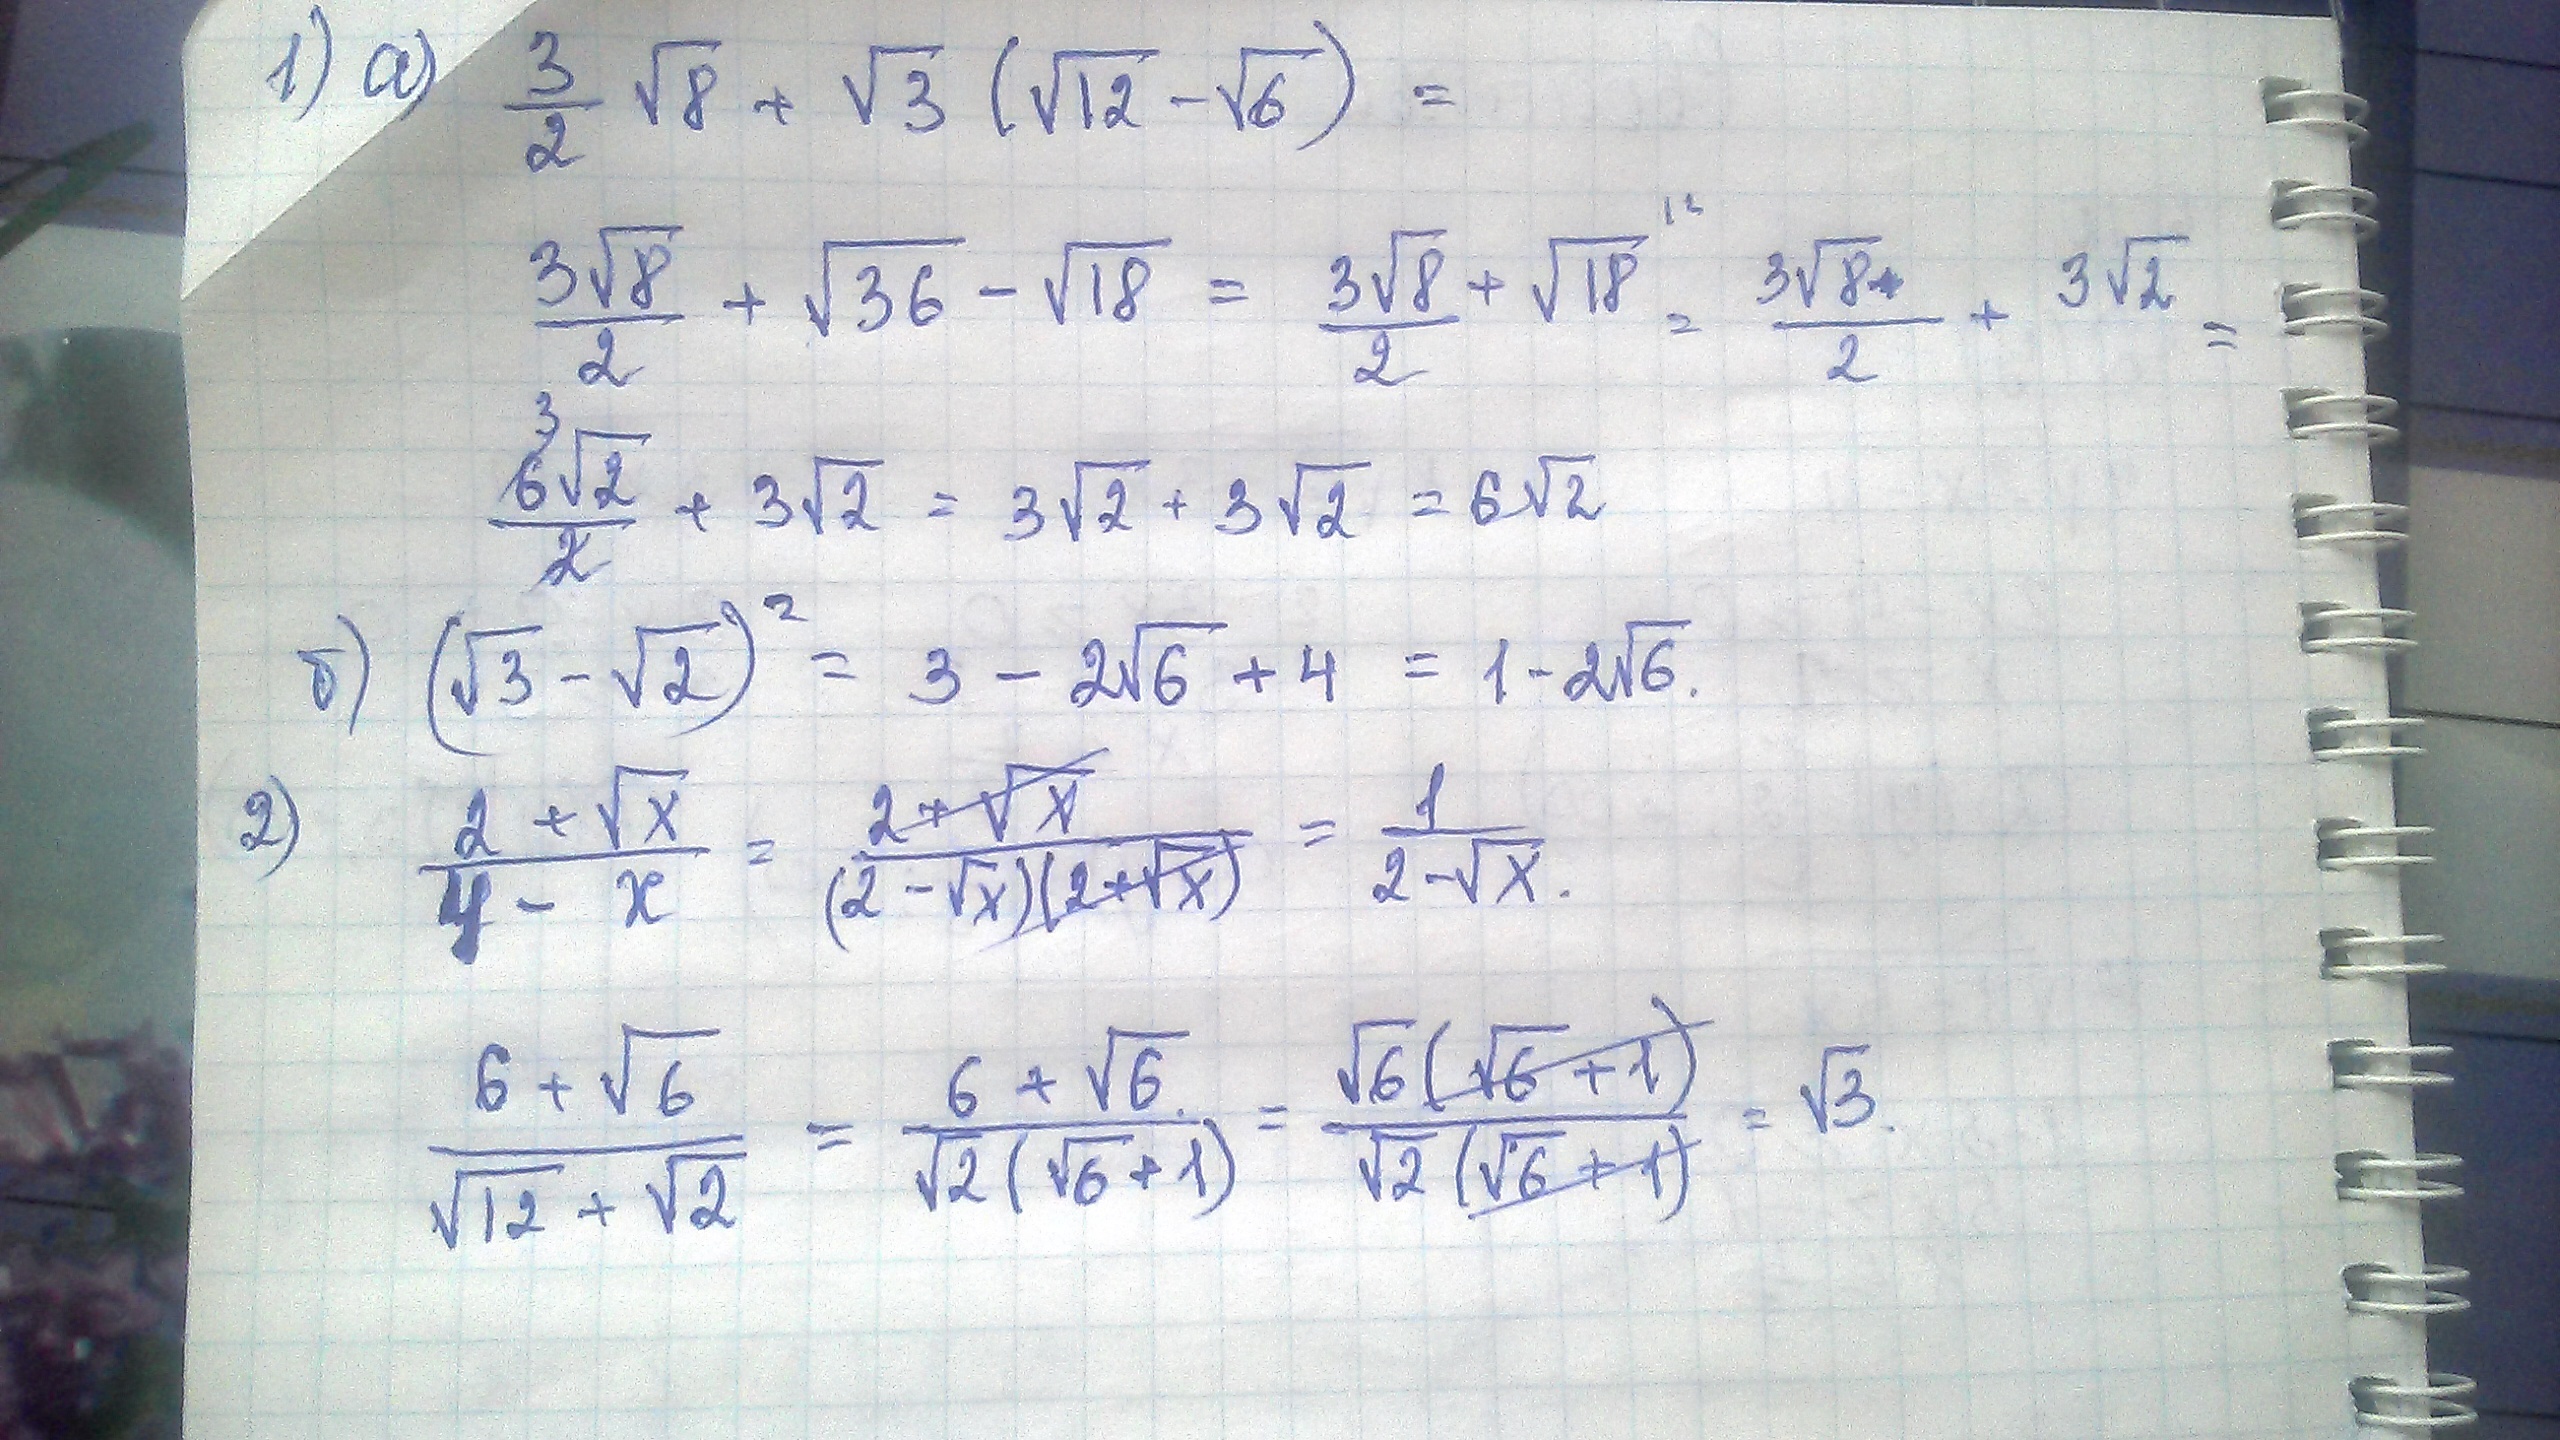 1) а) 3/2 √8 + √3 (√12 - √6) =
3√8/2 + √36 - √18 = 3√8/2 + √18 = 3√8/2 + 3√2 =
6√2/2 + 3√2 = 3√2 + 3√2 = 6√2
б) (√3 - √2)² = 3 - 2√6 + 4 = 1 - 2√6.
2) (2 + √x)/(4 - x) = (2 + √x)/((2 - √x)(2 + √x)) = 1/(2 - √x).
(6 + √6)/(√12 + √2) = (6 + √6)/(√2(√6 + 1)) = (√6(√6 + 1))/(√2(√6 + 1)) = √3.